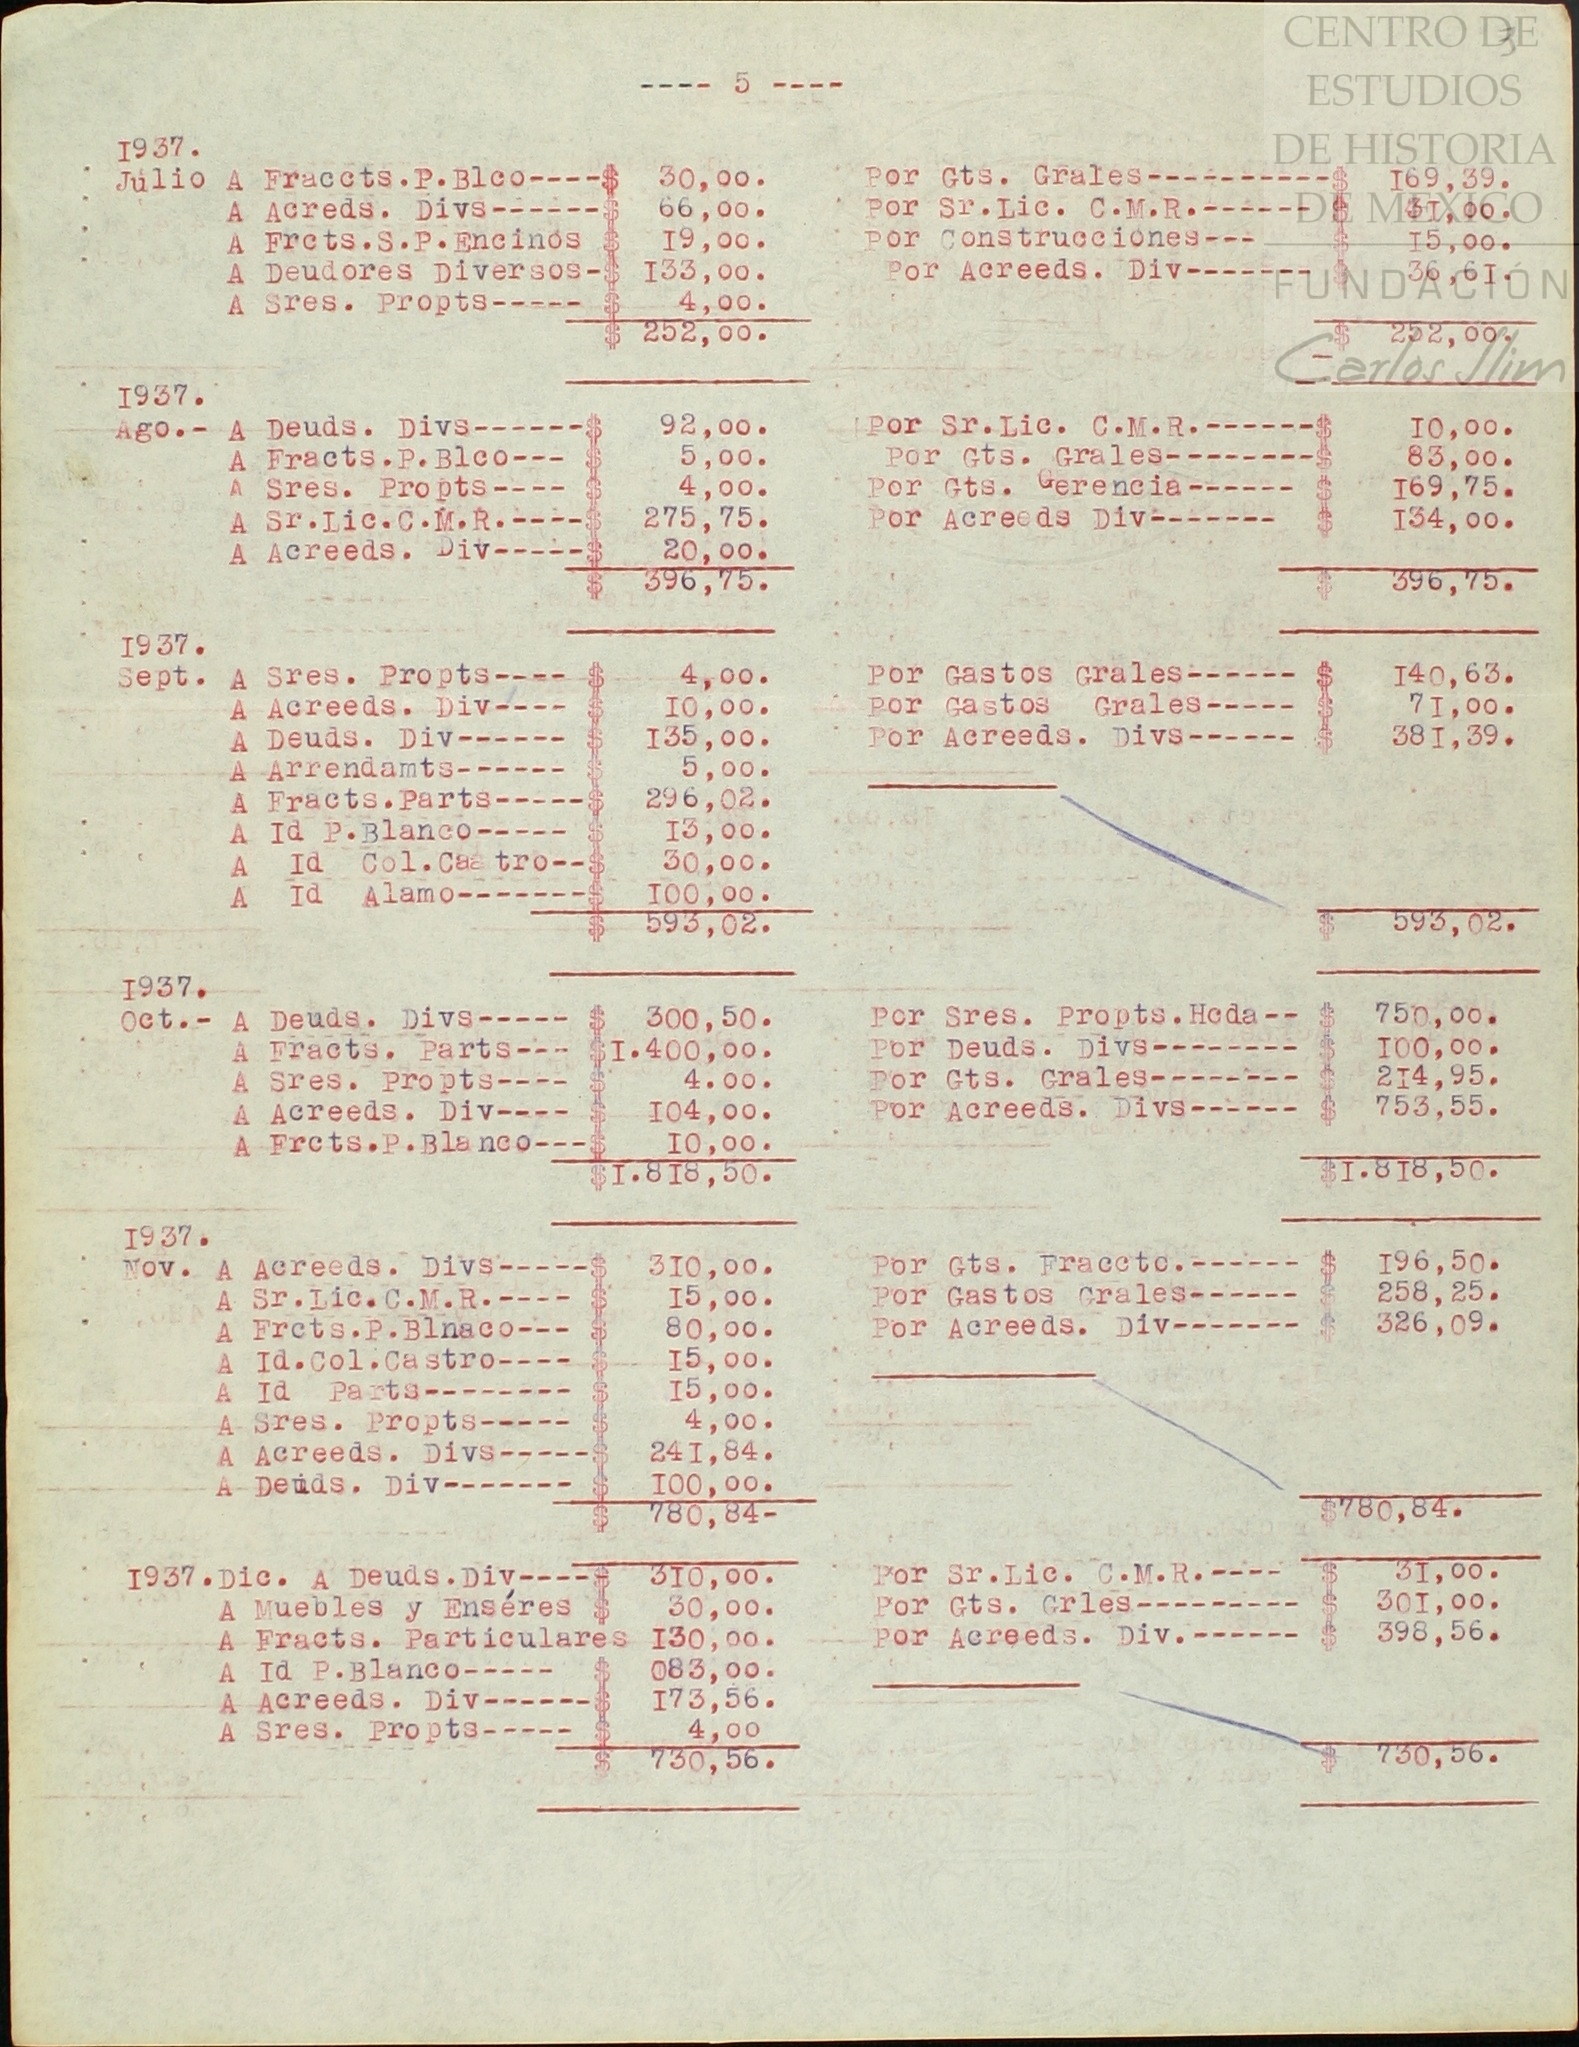 CENTRO DE
ESTUDIOS
DE HISTORIA
DE MÉXICO
FUNDACIÓN
Carlos Slim
3
---- 5 ----
1937.
Júlio A Fraccts.P.Blco----$ 30,00. Por Gts. Grales----------$ 169,39.
A Acreds. Divs------$ 66,00. Por Sr.Lic. C.M.R.------$ 31,00.
A Frcts.S.P.Encinos $ 19,00. Por Construcciones--- $ 15,00.
A Deudores Diversos-$ 133,00. Por Acreeds. Div------- $ 36,61.
A Sres. Propts----- $ 4,00.
$ 252,00. $ 252,00.
1937.
Ago.- A Deuds. Divs------$ 92,00. Por Sr.Lic. C.M.R.------$ 10,00.
A Fracts.P.Blco--- $ 5,00. Por Gts. Grales--------$ 83,00.
A Sres. Propts---- $ 4,00. Por Gts. Gerencia------ $ 169,75.
A Sr.Lic.C.M.R.----$ 275,75. Por Acreeds Div------- $ 134,00.
A Acreeds. Div-----$ 20,00.
$ 396,75. $ 396,75.
1937.
Sept. A Sres. Propts---- $ 4,00. Por Gastos Grales------ $ 140,63.
A Acreeds. Div---- $ 10,00. Por Gastos Grales----- $ 71,00.
A Deuds. Div------ $ 135,00. Por Acreeds. Divs------ $ 381,39.
A Arrendamts------ $ 5,00.
A Fracts.Parts-----$ 296,02.
A Id P.Blanco----- $ 13,00.
A Id Col.Castro--$ 30,00.
A Id Alamo-------$ 100,00.
$ 593,02. $ 593,02.
1937.
Oct.- A Deuds. Divs----- $ 300,50. Por Sres. Propts.Hcda-- $ 750,00.
A Fracts. Parts--- $1.400,00. Por Deuds. Divs-------- $ 100,00.
A Sres. Propts---- $ 4.00. Por Gts. Grales-------- $ 214,95.
A Acreeds. Div---- $ 104,00. Por Acreeds. Divs------ $ 753,55.
A Frcts.P.Blanco---$ 10,00.
$1.818,50. $1.818,50.
1937.
Nov. A Acreeds. Divs-----$ 310,00. Por Gts. Fraccto.------ $ 196,50.
A Sr.Lic.C.M.R.---- $ 15,00. Por Gastos Grales------ $ 258,25.
A Frcts.P.Blnaco--- $ 80,00. Por Acreeds. Div------- $ 326,09.
A Id.Col.Castro---- $ 15,00.
A Id Parts-------- $ 15,00.
A Sres. Propts----- $ 4,00.
A Acreeds. Divs-----$ 241,84.
A Deuds. Div------- $ 100,00.
$ 780,84- $780,84.
1937.Dic. A Deuds.Div----$ 310,00. Por Sr.Lic. C.M.R.---- $ 31,00.
A Muebles y Enséres $ 30,00. Por Gts. Grles--------- $ 301,00.
A Fracts. Particulares 130,00. Por Acreeds. Div.------ $ 398,56.
A Id P.Blanco----- $ 083,00.
A Acreeds. Div------$ 173,56.
A Sres. Propts----- $ 4,00
$ 730,56. $ 730,56.